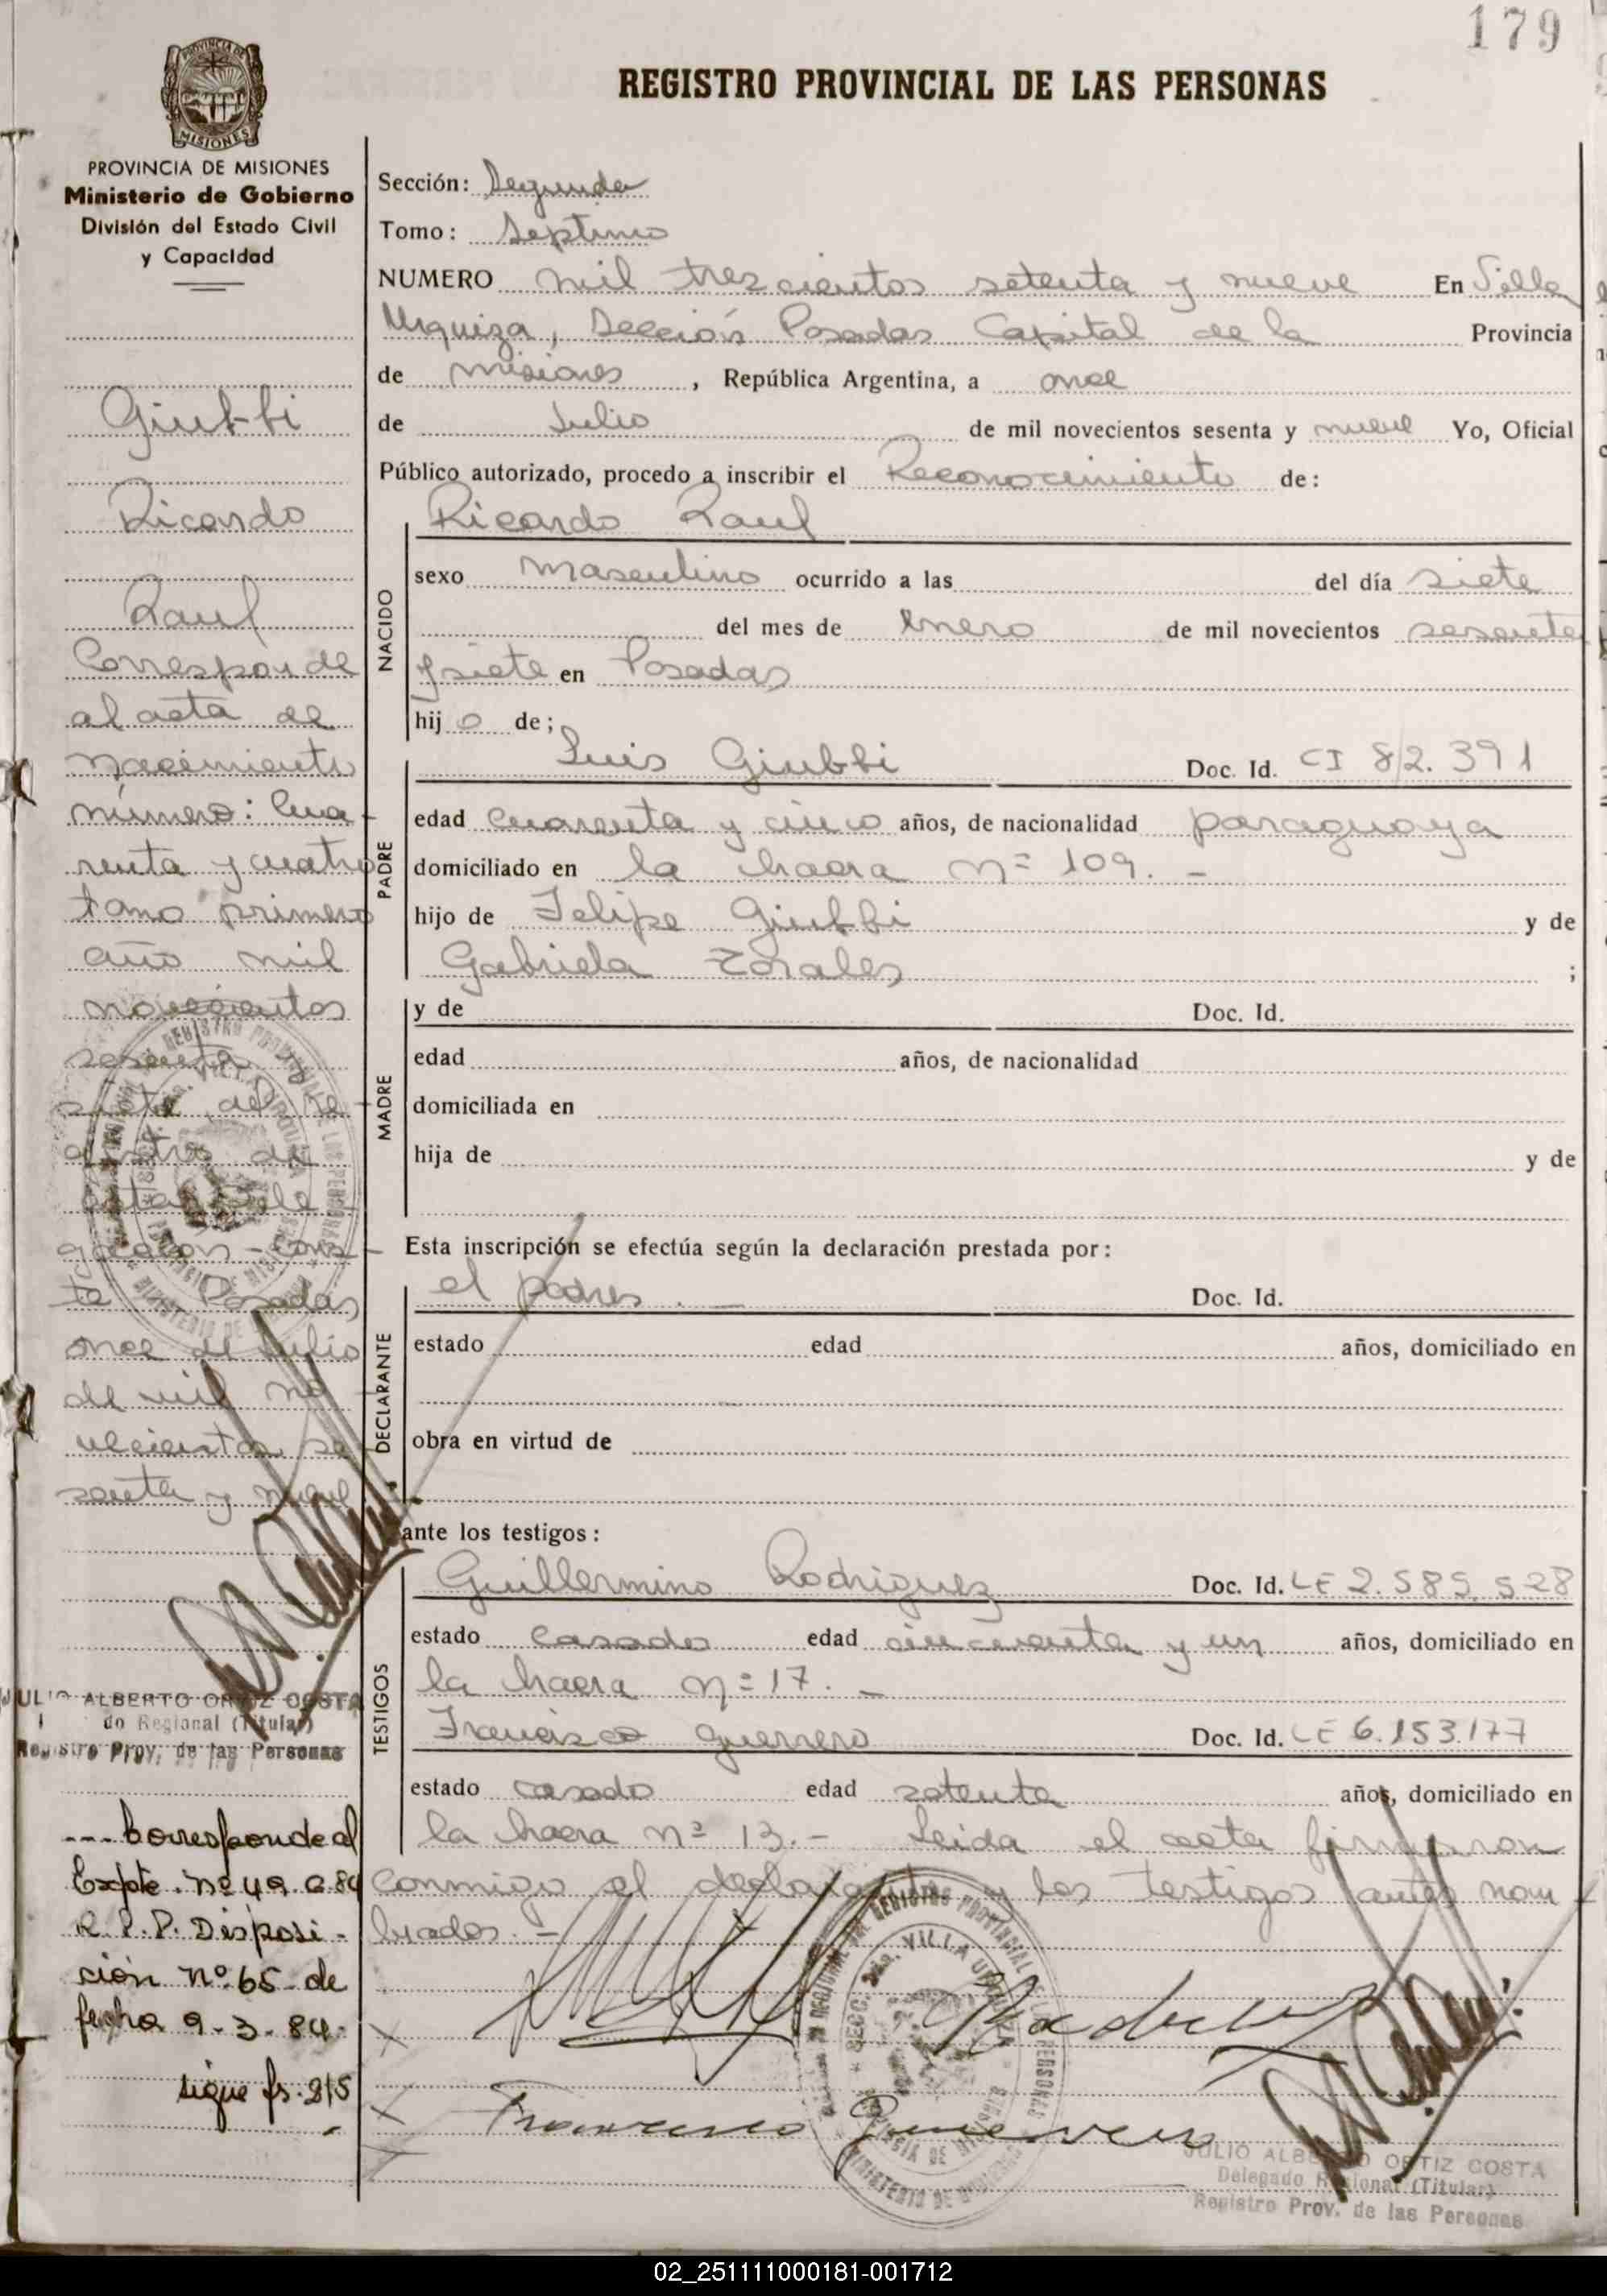 179
REGISTRO PROVINCIAL DE LAS PERSONAS
PROVINCIA DE MISIONES
Ministerio de Gobierno
División del Estado Civil
y Capacidad
Giubbi
Ricardo
Raul
Corresponde
al acta de
nacimiento
número: Cua-
renta y cuatro
tomo primero
año mil
novecientos
sesenta
siete del Re-
gistro de
esta Dele-
gacion - Cons-
te Posadas,
once de Julio
de mil no-
vecientos se
senta y nueve
JULIO ALBERTO ORTIZ COSTA
do Regional (Titular)
Registro Prov. de las Personas
--- Corresponde al
Expte. Nº 49 C 84
R. P. P. Disposi-
ción Nº 65 de
fecha 9-3-84.
sigue fs. 215
Sección: Segunda
Tomo: Septimo
NUMERO mil trescientos setenta y nueve En Villa
Urquiza, Sección Posadas Capital de la Provincia
de Misiones, República Argentina, a once
de Julio de mil novecientos sesenta y nueve Yo, Oficial
Público autorizado, procedo a inscribir el Reconocimiento de:
Ricardo Raul
NACIDO
sexo masculino ocurrido a las del día siete
del mes de Enero de mil novecientos sesenta
y siete en Posadas
hijo de;
PADRE
Luis Giubbi Doc. Id. CI 82.391
edad cuarenta y cinco años, de nacionalidad paraguaya
domiciliado en la chacra Nº 109. -
hijo de Felipe Giubbi y de
Gabriela Zorales ;
MADRE
y de Doc. Id.
edad años, de nacionalidad
domiciliada en
hija de y de
Esta inscripción se efectúa según la declaración prestada por:
DECLARANTE
el padre. — Doc. Id.
estado edad años, domiciliado en
obra en virtud de
ante los testigos:
TESTIGOS
Guillermino Rodriguez Doc. Id. LE 2.585.528
estado casado edad cincuenta y un años, domiciliado en
la chacra Nº 17. -
Francisco Guerrero Doc. Id. LE 6.153.177
estado casado edad setenta años, domiciliado en
la chacra Nº 13. - Leida el acta firmaron
conmigo el declarante y los testigos antes nom
brados. -
Francisco Guerrero
JULIO ALBERTO ORTIZ COSTA
Delegado Regional (Titular)
Registro Prov. de las Personas
02_251111000181-001712